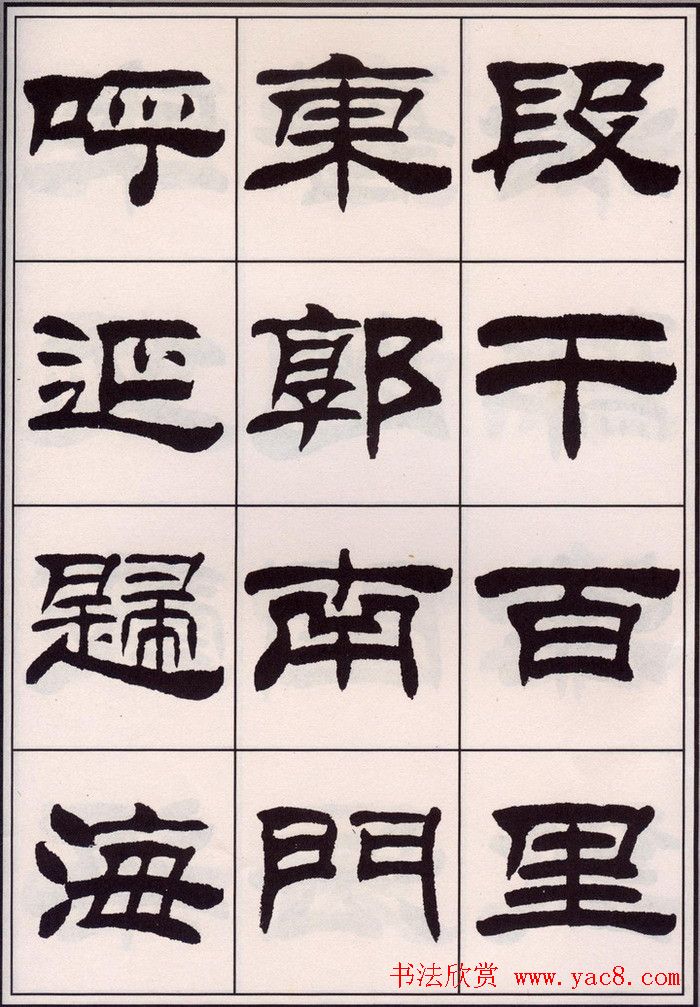 段干百里
東郭南門
呼延歸海
书法欣赏 www.yac8.com